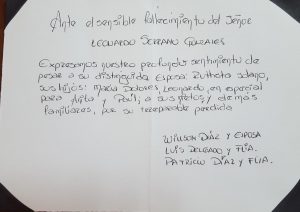 Ante el sensible fallecimiento del Señor
LEONARDO SERRANO GONZALES
Expresamos nuestro profundo sentimiento de
pesar a su distinguida Esposa Ruthcita
sus hijos: María Dolores, Leonardo, en especial
para Anita y Paúl; a sus nietos y demás
familiares, por su irreparable perdida
WILLSON DÍAZ Y ESPOSA
LUIS DELGADO Y FLIA.
PATRICIO DÍAZ Y FLIA.